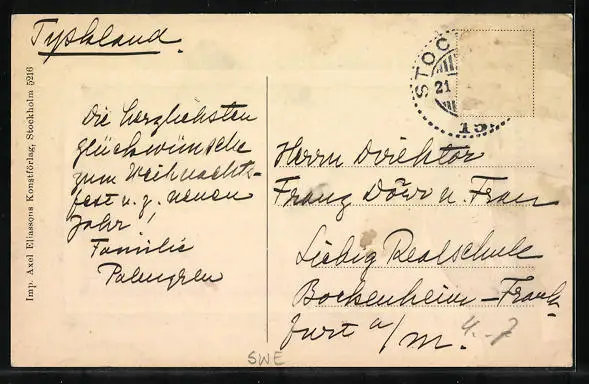 Tyskland.
Imp. Axel Eliassons Konstförlag, Stockholm 5216
STOC
21
15
Die herzlichsten
glückwünsche
zum Weihnachts-
fest u. z. neuen
Jahr!
Familie
Palmgren
Herrn Direktor
Franz Dörr u. Frau
Liebig Realschule
Bockenheim – Frank-
furt a/M.
SWE